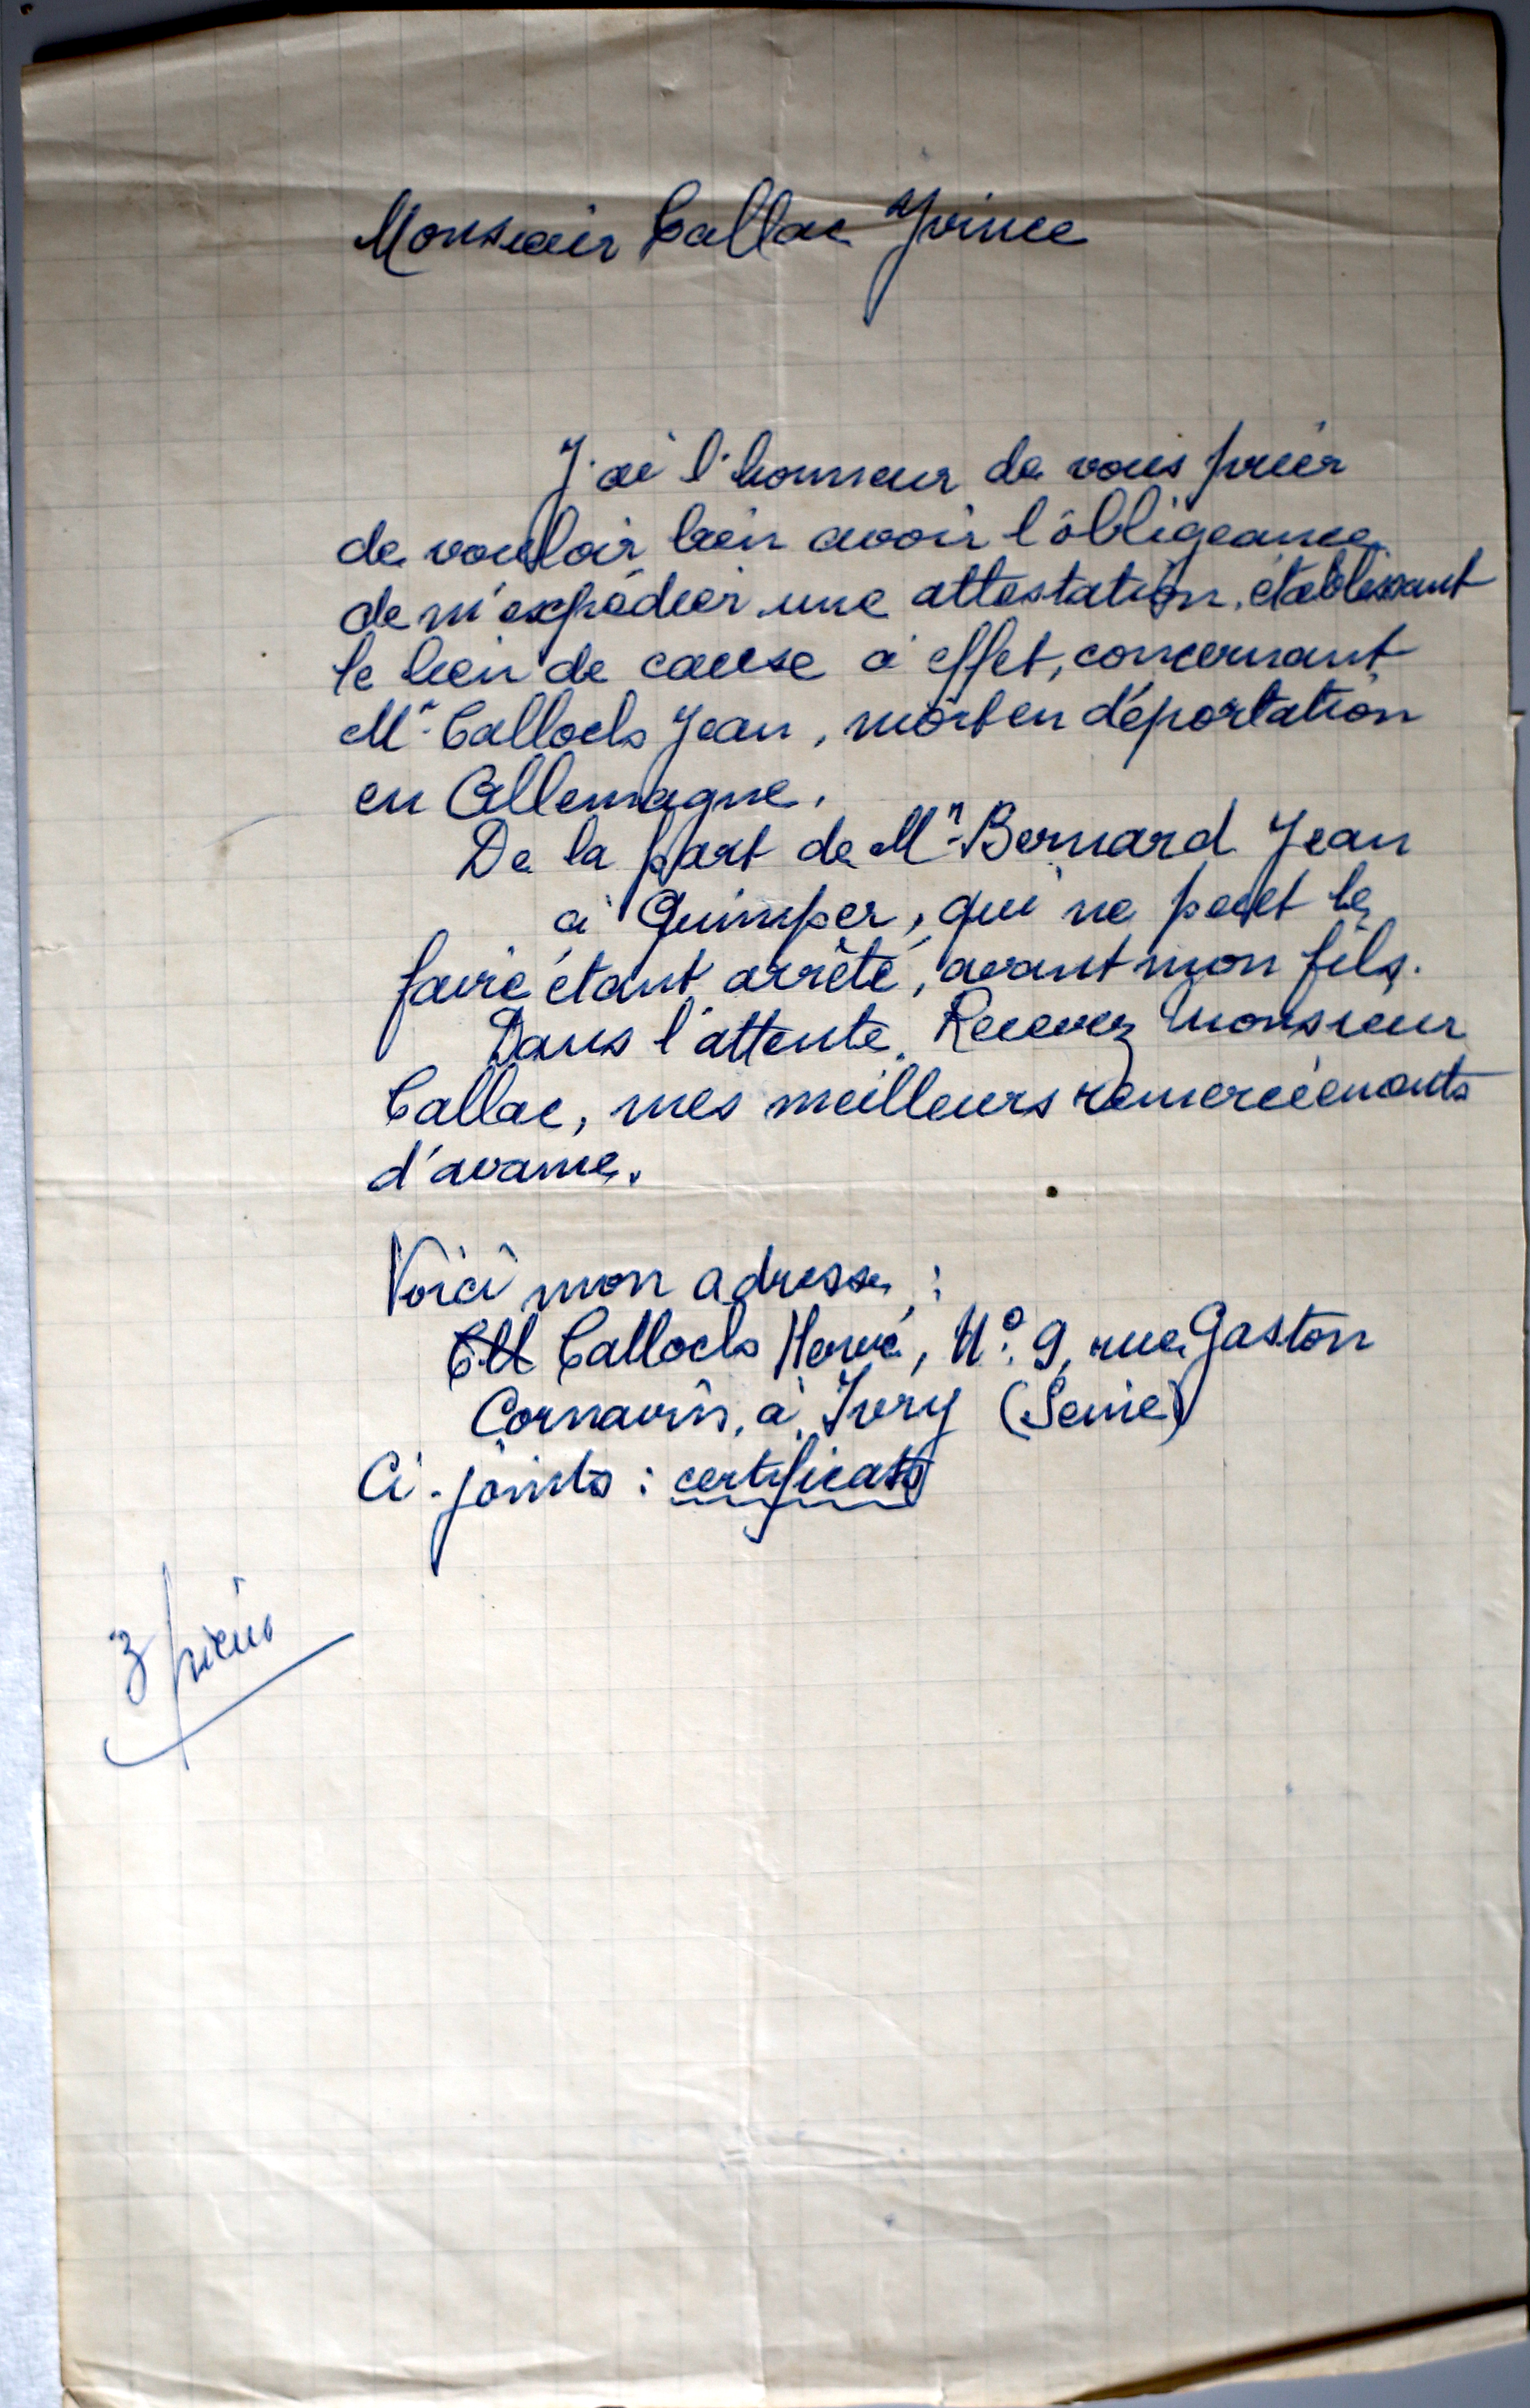 Monsieur Callac Yvinec
J'ai l'honneur de vous prier
de vouloir bien avoir l'obligeance
de m'expédier une attestation, établissant
le lien de cause à effet, concernant
Mr Calloch Jean, mort en déportation
en Allemagne.
De la part de Mr Bernard Jean
à Quimper, qui ne peut le
faire étant arrêté, avant mon fils.
Dans l'attente, Recevez Monsieur
Callac, mes meilleurs remerciements
d'avance.
Voici mon adresse :
Calloch Hervé, N° 9, rue Gaston
Cornavin, à Ivry (Seine)
Ci-joints : certificats
3 pièces